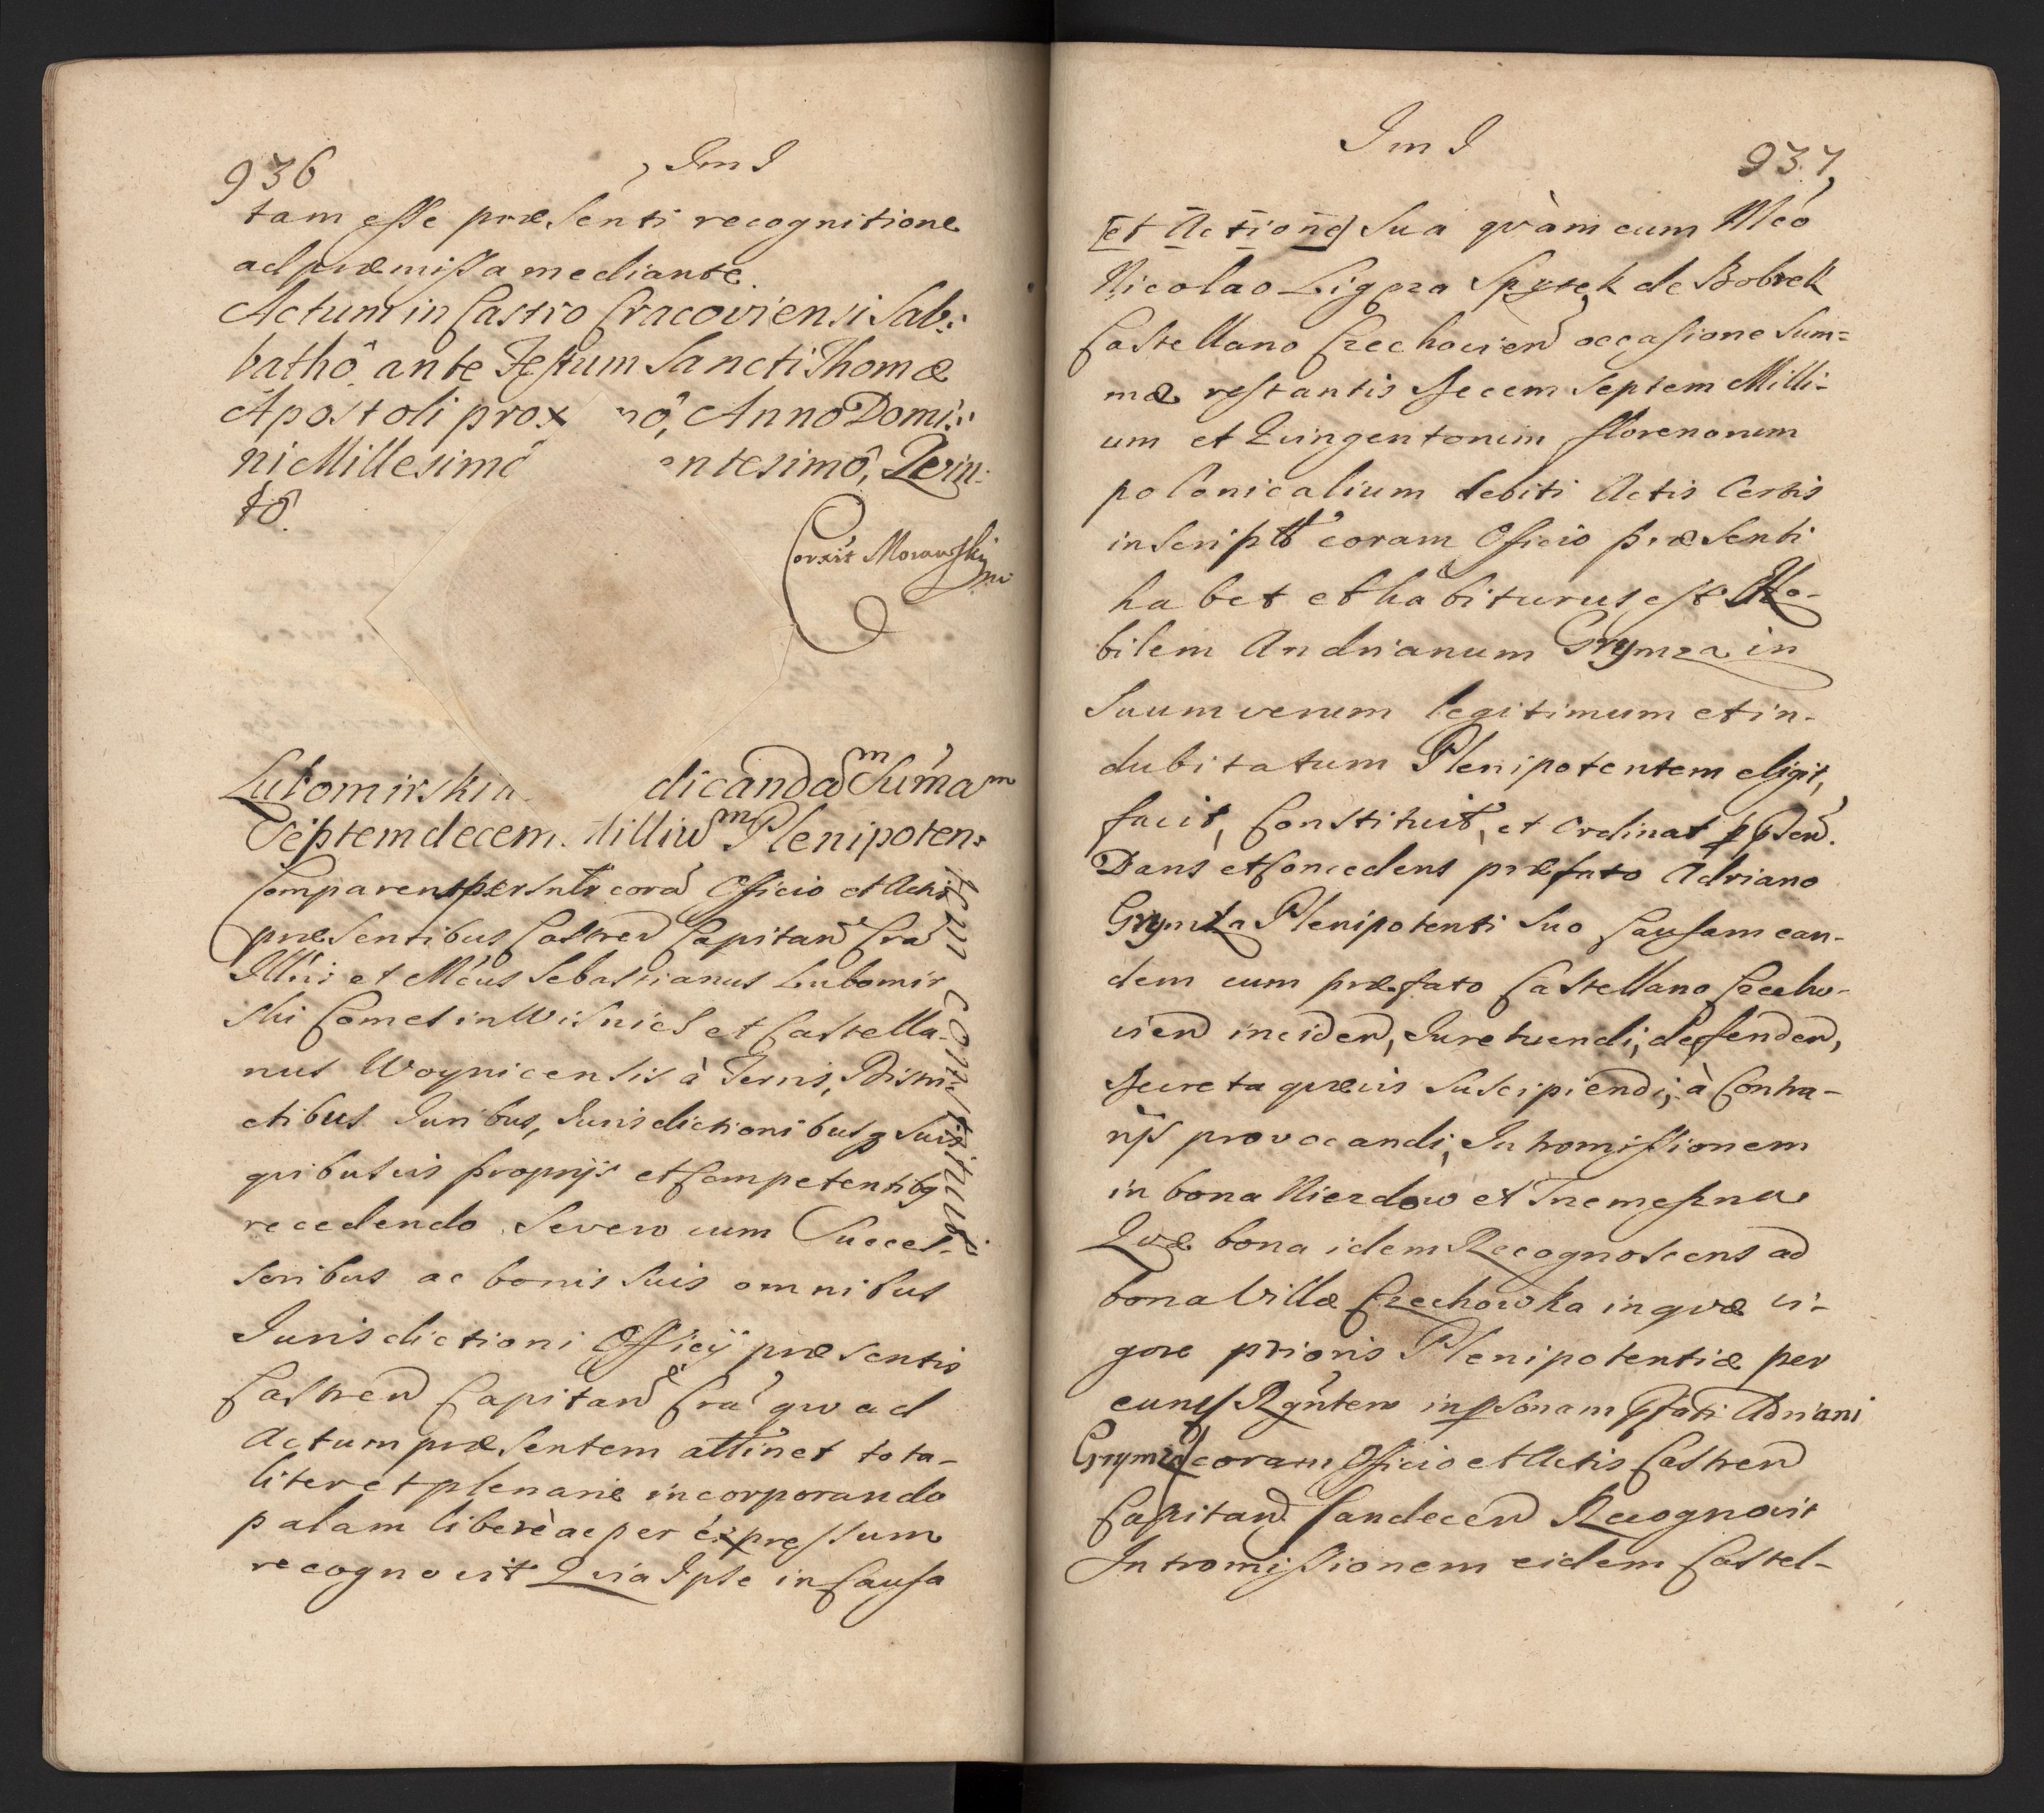 936
Im I
tam esse præsenti recognitione
ad præmissa mediante.
Actum in Castro Cracoviensi Sab:
bathô ante Festum Sancti Thomæ
Apostoli prox nô, Anno Domi:
ni Millesimô entesimô, Qvin:
tô.
Corxit Morawski
mp
Lubomirski dicandam Sumam
Septemdecem Milliu Plenipoten:
tem constituit
Comparens persntr cora Officio et Actis
præsentibus Castren Capitan Cra
Illris et Mcus Sebastianus Lubomir
ski Comes in Wisnicz et Castella-
nus Woynicensis à Terris, Distri-
ctibus Iuribus, Iurisdictionibusq suis
quibusvis proprijs et Competentibq
recedendo Seveno cum Succes-
soribus ac bonis suis omnibus
Iurisdictioni Officij præsentis
Castren Capitan Cra quo ad
Actum præsentem attinet tota-
liter et plenarie incorporando
palam liberè ac per éxpressum
recognovit Quia Ipse in Causa
Im I
937
[et Actione] Sua qvàm cum Mco
Nicolao Ligęza Spytek de Bobrek
Castellano Czechovien occasione Sum=
mæ restantis Decem Septem Milli-
um et Quingentorum florenorum
polonicalium debiti Actis Certis
inscript coram Officio præsenti
habet et habiturus est No-
bilem Andrianum Grymza in
Suum verum legitimum et in-
dubitatum Plenipotentem eligit,
facit, Constituit, et Ordinat p psen.
Dans et Concedens præfato Adriano
Grymza Plenipotenti Suo Causam ean-
dem cum præfato Castellano Czecho-
vien inciden, Iure tuendi, defenden,
Decreta quævis Suscipiendi, à Contra-
rijs provocandi, Intromissionem
in bona Nierdow et Tremeszna
Qvæ bona idem Recognoscens ad
bona Villæ Czechowka in qvæ vi-
gore prioris Plenipotentiæ per
eund Rgnten in psonam pfati Adriani
Grymza coram Officio et Actis Castren
Capitan Sandecen Recognovit
Intromissionem eidem Castel-